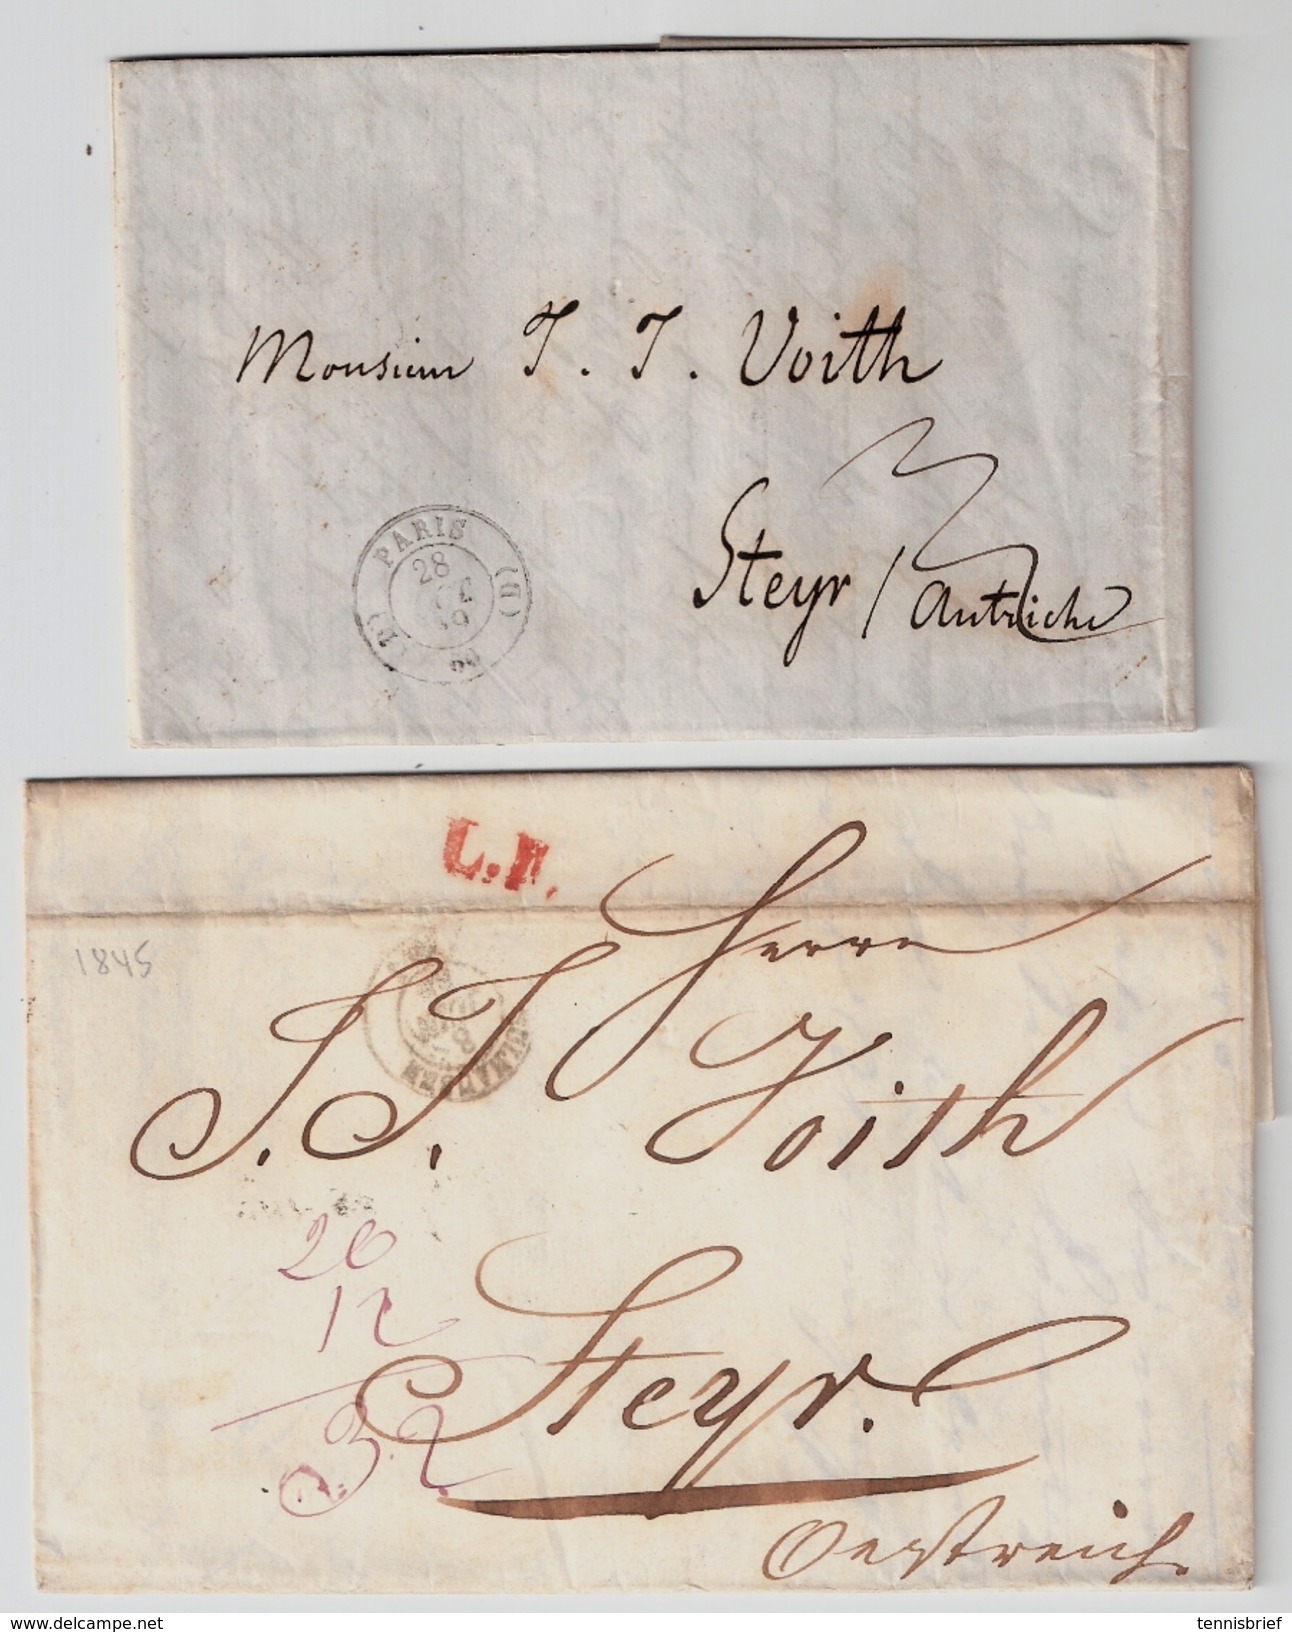 Monsieur J. J. Voith
Steyr / Autriche
PARIS
28
60
L.F.
1845
Herrn
J. J. Voith
20
12
32
Steyr.
Oestreich.
delcampe.net
tennisbrief